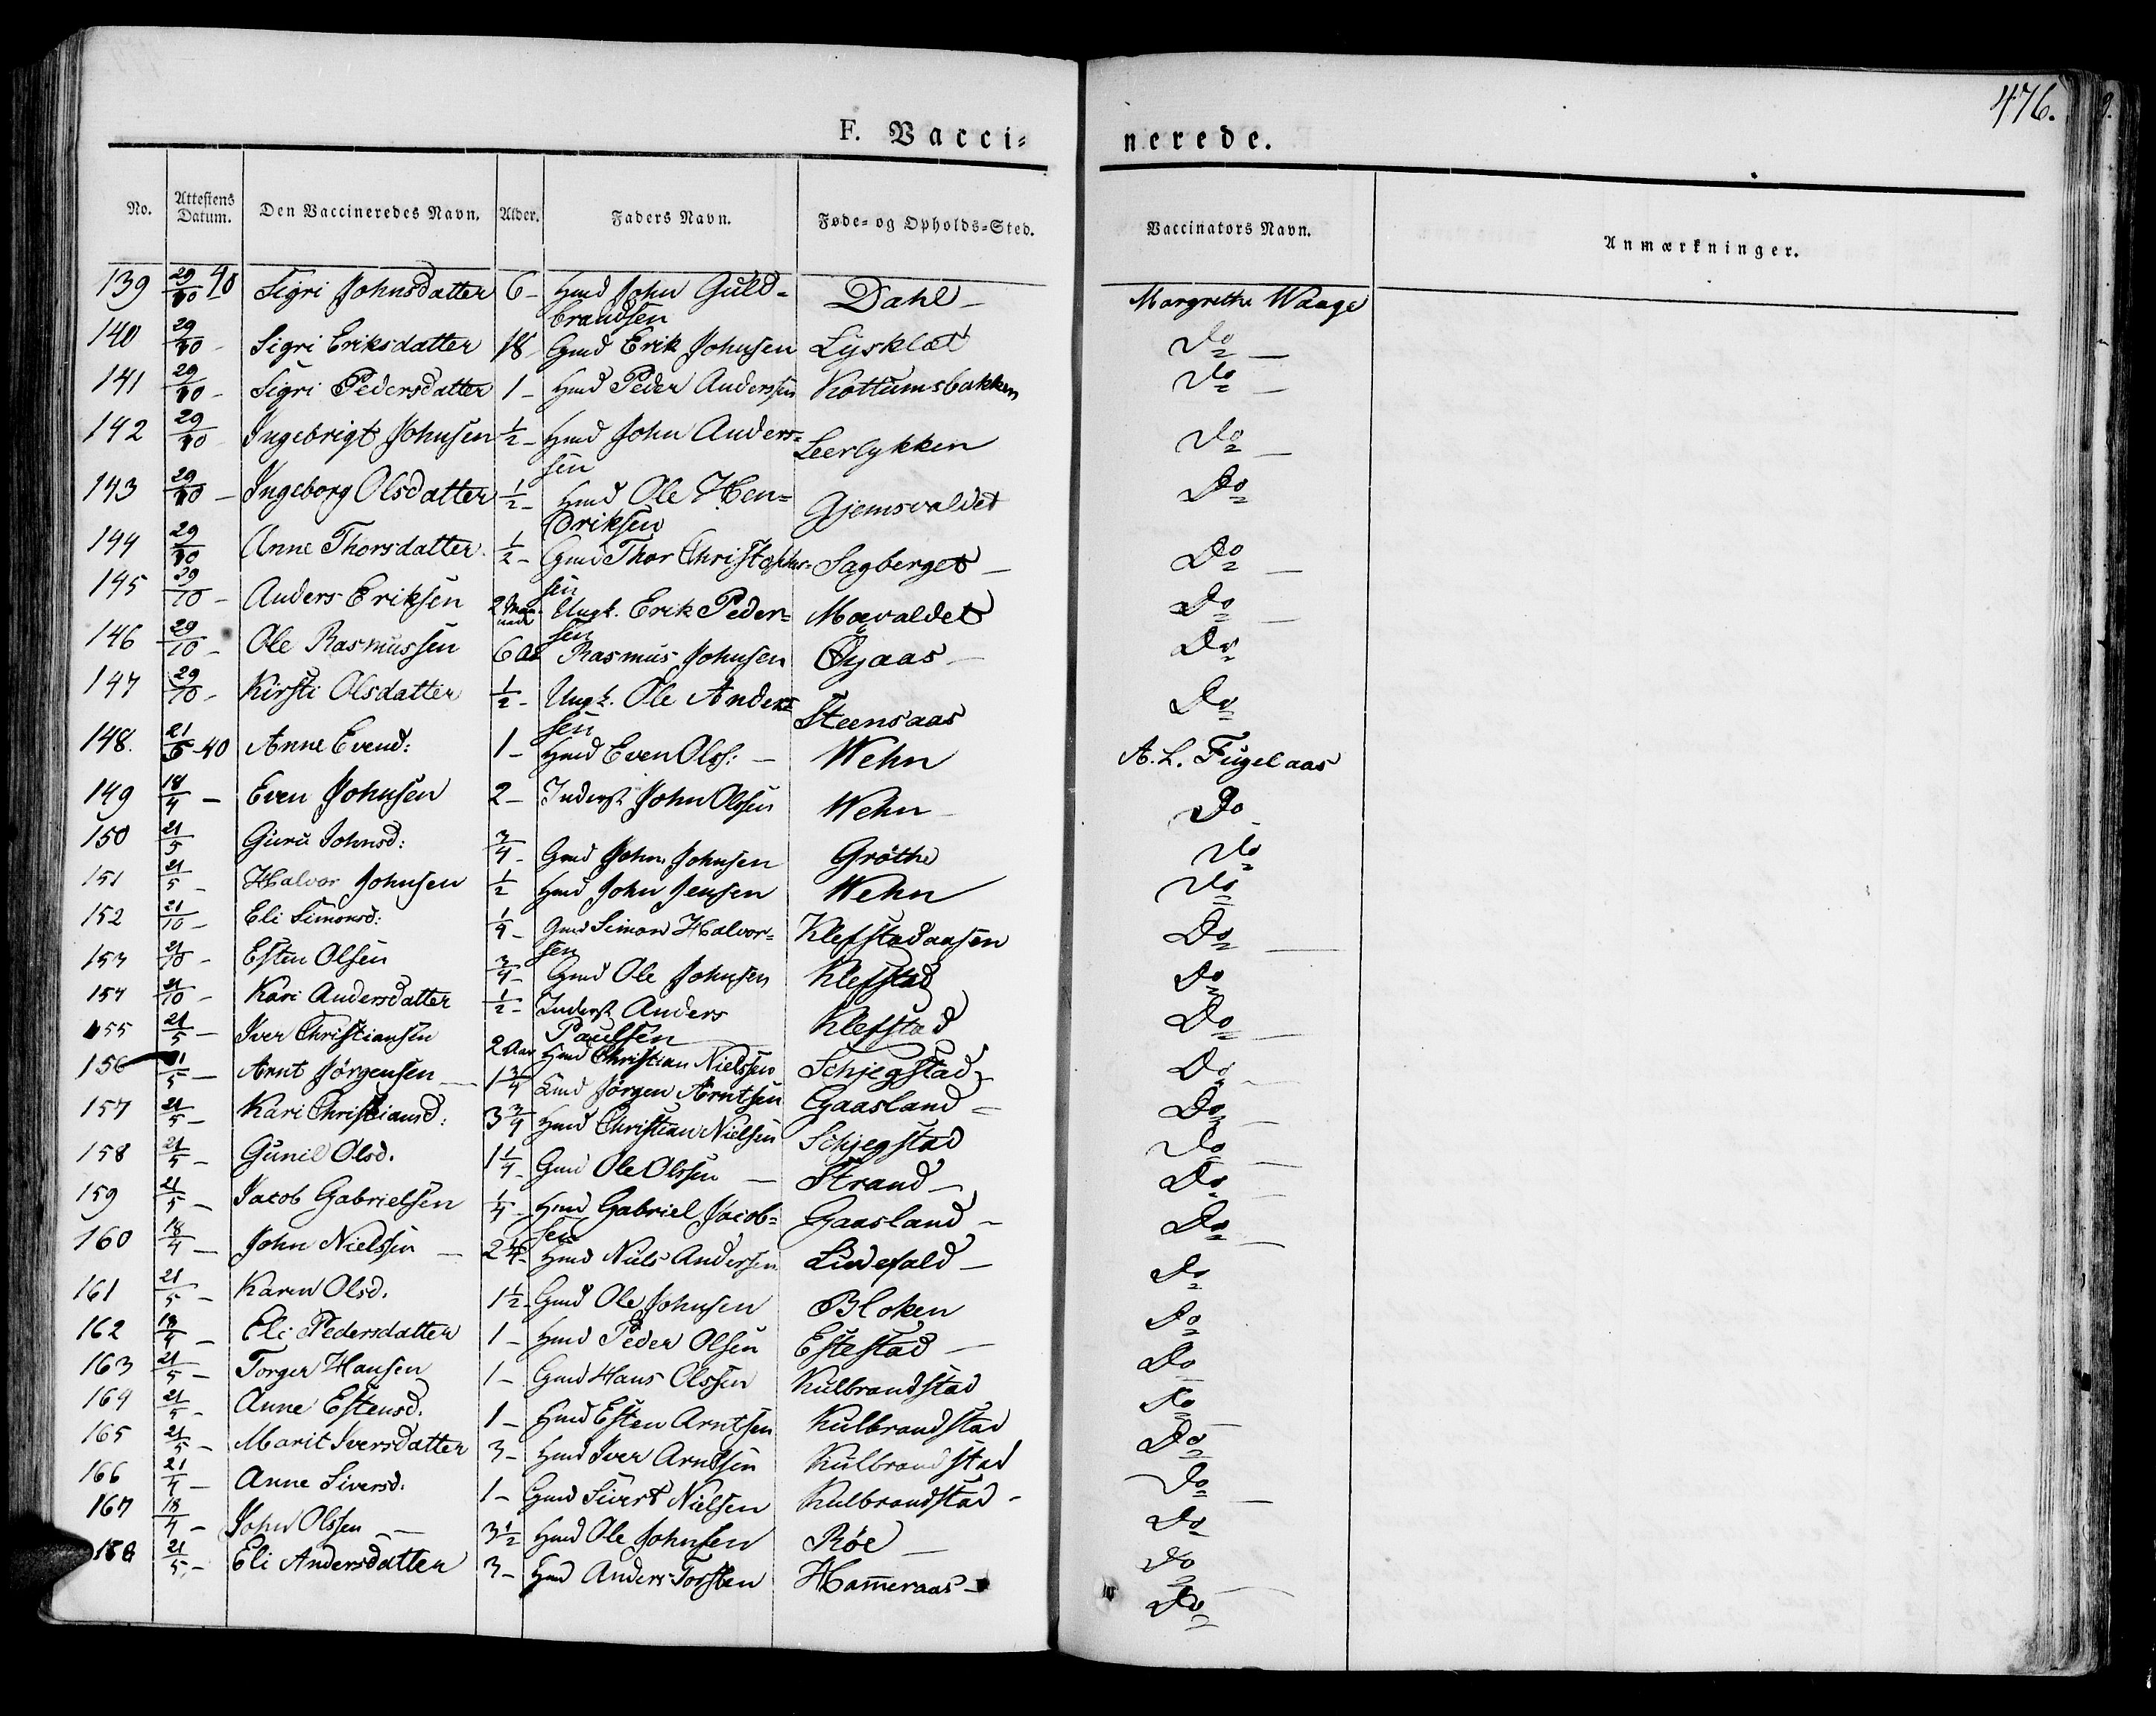 476.
F. Vacci- nerede.
No. Attestens Datum. Den Vaccineredes Navn. Alder. Faders Navn. Føde- og Opholds-Sted. Vaccinators Navn. Anmærkninger.
139 29/10 40 Sigri Johnsdatter 6 - Hmd John Guld- Dahl - Margrethe Waage
brandsen
140 29/10 - Sigri Eriksdatter 18 Gmd Erik Johnsen Lysklæt Do -
141 29/10 - Sigri Pedersdatter 1 - Hmd Peder Anderssen Kottumsbakken Do -
142 29/10 - Ingebrigt Johnsen 1/2 - Hmd John Anders- Leerlykken Do -
sen
143 29/10 - Ingeborg Olsdatter 1/2 - Hmd Ole Hen- Gjemsvaldet Do
driksen
144 29/10 Anne Thorsdatter 1/2 - Gmd Thor Christopher- Sagberget - Do -
sen
145 29/10 - Anders Eriksen 2 Ungk. Erik Peder- Moevaldet Do -
sen
146 29/10 - Ole Rasmussen 6 Rasmus Johnsen Øyaas - Do
147 29/10 - Kirsti Olsdatter 1/2 - Ungk. Ole Ander- Steensaas Do
sen
148. 21/5 - 40 Anne Evend: 1 - Hmd Even Olss: - Wehn A. L. Fugelaas
149 18/4 - Even Johnsen 2 - Inderst John Olssen Wehn - Do
150 21/5 Guru Johnsd: 3/4 - Gmd John Johnsen Grøthe Do
151 21/5 - Halvor Johnsen 1/2 Hmd John Jensen Wehn Do
152 21/10 - Eli Simonsd: 1/4 - Gmd Simon Halvor- Klefstadaasen Do -
sen
153 21/10 - Esten Olsen 3/4 - Gmd Ole Johnsen Klefstad Do
154 21/10 - Kari Andersdatter 1/2 - Inderst Anders Klefstad Do -
Paulsen
155 21/5 - Iver Christiansen 2 Aar Hmd Christian Nielssen Schjegstad - Do -
156 21/5 - Arnt Jørgensen - 1 3/4 Jørgen Arntsen Gaasland - Do -
157 21/5 - Kari Christiansd: 3 3/4 Hmd Christian Nielsen Schjegstad Do -
158 21/5 - Gunil Olsd. 1 1/4 - Gmd Ole Olssen - Strand - Do -
159 21/5 - Jacob Gabrielsen 1/4 - Hmd Gabriel Jacob- Gaasland - Do -
sen
160 18/4 - John Nielssen - 2 1/4 - Hmd Niels Andersen Lindefald - Do
161 21/5 - Karen Olsd. 1 1/2 - Gmd Ole Johnsen Bloken Do
162 18/4 - Eli Pedersdatter 1 - Hmd Peder Olsen Estestad - Do
163 21/5 - Torger Hansen 1 - Gmd Hans Olssen Kulbrandstad Do -
164 21/5 - Anne Estensd. 1 - Hmd Esten Arntsen Kulbrandstad Do
165 21/5 - Marit Iversdatter 3 - Hmd Iver Arntsen Kulbrandstad Do
166 21/4 - Anne Siversd. 1 - Gmd Sivert Nielsen Kulbrandstad - Do -
167 18/4 - John Olssen - 3 1/2 Hmd Ole Johnsen Røe - Do
168 21/5 - Eli Andersdatter 3 - Hmd Anders Torsten Hammeraas - Do
Do